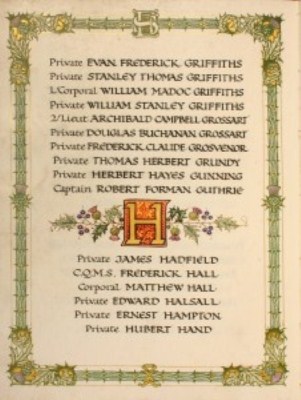 Private EVAN FREDERICK GRIFFITHS
Private STANLEY THOMAS GRIFFITHS
L/Corporal WILLIAM MADOC GRIFFITHS
Private WILLIAM STANLEY GRIFFITHS
2/Lieut ARCHIBALD CAMPBELL GROSSART
Private DOUGLAS BUCHANAN GROSSART
Private FREDERICK CLAUDE GROSVENOR
Private THOMAS HERBERT GRUNDY
Private HERBERT HAYES GUNNING
Captain ROBERT FORMAN GUTHRIE
H
Private JAMES HADFIELD
C.Q.M.S. FREDERICK HALL
Corporal MATTHEW HALL
Private EDWARD HALSALL
Private ERNEST HAMPTON
Private HUBERT HAND